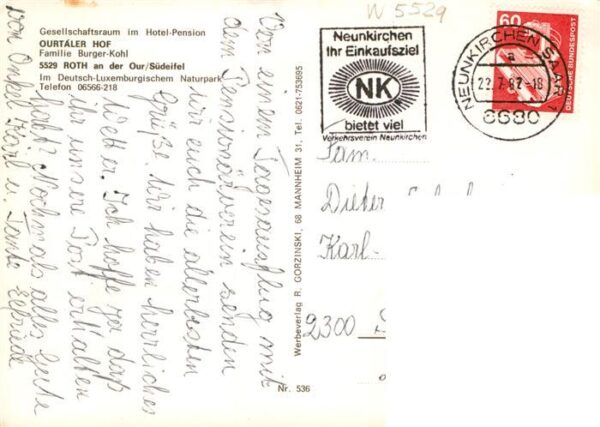 W 5529
Gesellschaftsraum im Hotel-Pension
OURTÄLER HOF
Familie Burger-Kohl
5529 ROTH an der Our/Südeifel
Im Deutsch-Luxemburgischem Naturpark
Telefon 06566-218
Von einem Tagesausflug mit
dem Pensionärverein senden
wir euch die allerbesten
Grüße. Wir haben herrliches
Wetter. Ich hoffe ja daß
ihr unsere Post erhalten
habt? Nochmals alles Gute
von Onkel Karl u. Tante Elfriede
Werbeverlag R. GORZINSKI, 68 MANNHEIM 31, Tel. 0621-753695
Nr. 536
Neunkirchen
Ihr Einkaufsziel
NK
bietet viel
Verkehrsverein Neunkirchen
NEUNKIRCHEN, SAAR 1
a
22.7.87-18
6680
60
DEUTSCHE BUNDESPOST
Fam.
Dieter
Karl-
2300